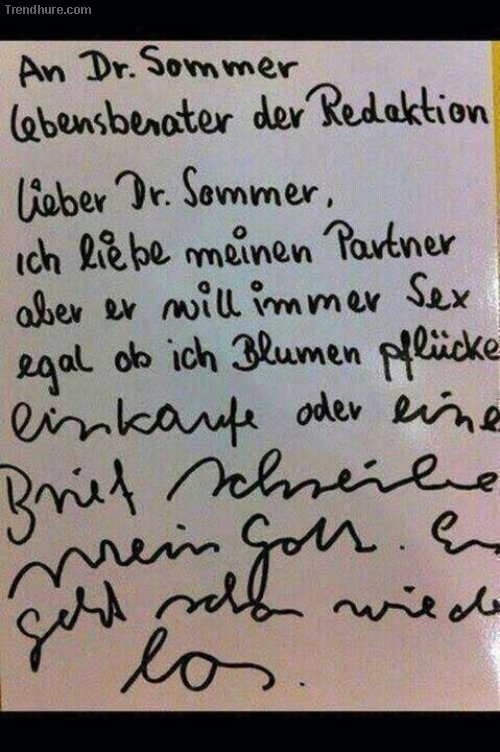 Trendhure.com
An Dr. Sommer
Lebensberater der Redaktion
Lieber Dr. Sommer,
ich liebe meinen Partner
aber er will immer Sex
egal ob ich Blumen pflücke
einkaufe oder eine
Brief schreibe
mein Gott. Es
geht schon wiede
los.